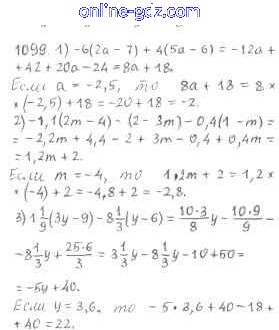 online-gdz.com
1099. 1) -6(2a - 7) + 4(5a - 6) = -12a +
+42 + 20a - 24 = 8a + 18.
Если a = -2,5, то 8a + 18 = 8 ×
× (-2,5) + 18 = -20 + 18 = -2.
2) -1,1(2m - 4) - (2 - 3m) - 0,4(1 - m) =
= -2,2m + 4,4 - 2 + 3m - 0,4 + 0,4m =
= 1,2m + 2.
Если m = -4, то 1,2m + 2 = 1,2 ×
× (-4) + 2 = -4,8 + 2 = -2,8.
3) 1 1/9 (3y - 9) - 8 1/3 (y - 6) = 10·3/8 y - 10·9/9 -
- 8 1/3 y + 25·6/3 = 3 1/3 y - 8 1/3 y - 10 + 50 =
= -5y + 40.
Если y = 3,6, то -5 · 3,6 + 40 - 18 +
+ 40 = 22.